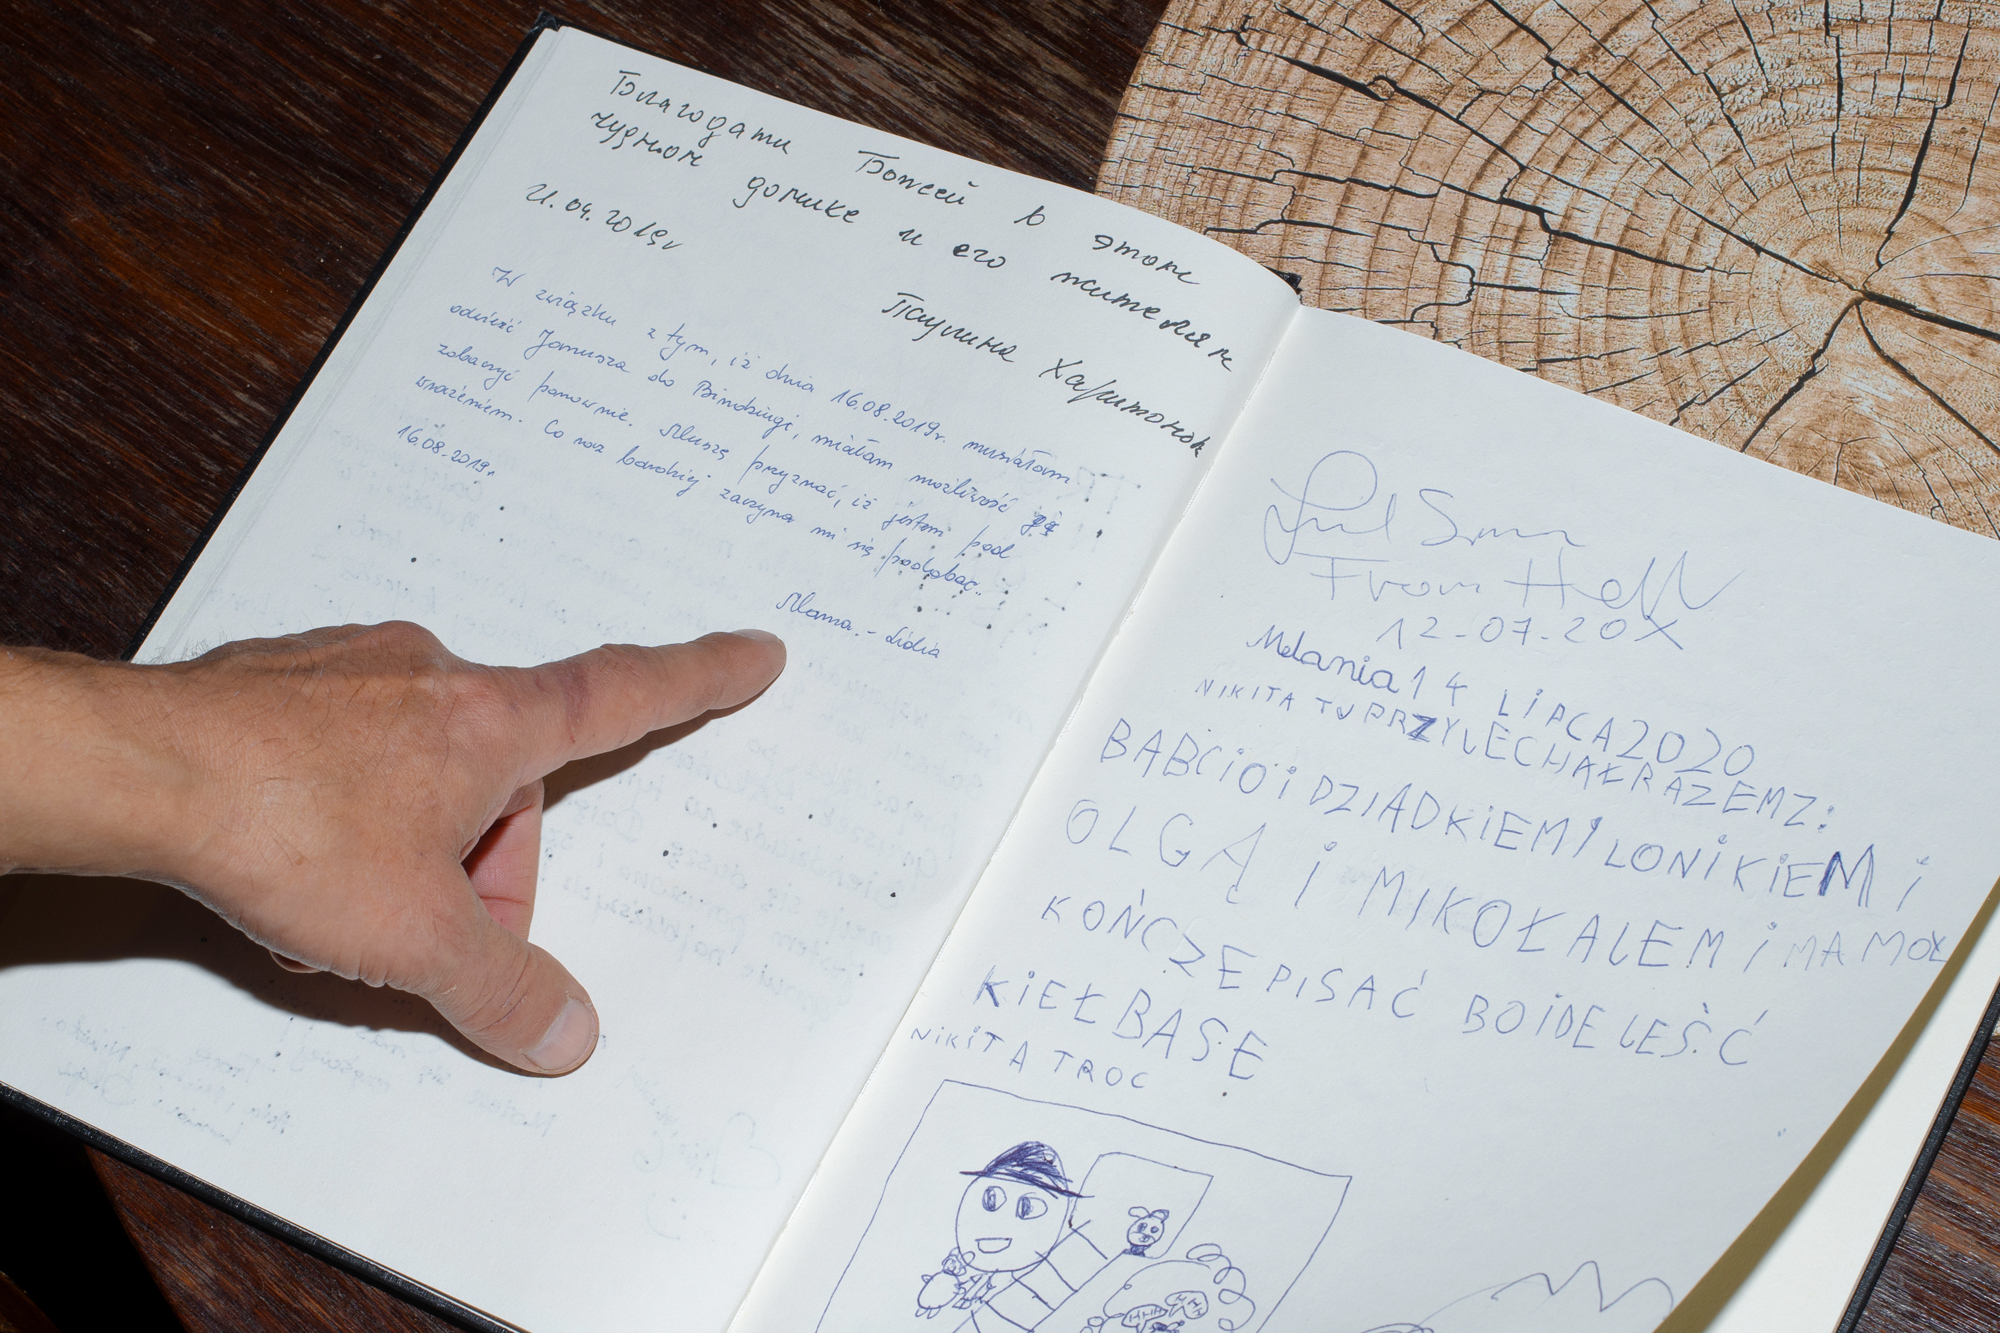 Благодати Божей в этом
чудном домике и его жителям
21.04.2019г
Паулина Харитонюк
W związku z tym, iż dnia 16.08.2019r. musiałam
odwieźć Janusza do Bindiugi, miałam możliwość ją
zobaczyć ponownie. Muszę przyznać, iż jestem pod
wrażeniem. Co raz bardziej zaczyna mi się podobać..
16.08.2019r.
Mama. - Lidia
From Hell
12-07-20
Melania 14 LIPCA 2020
NIKITA TU PRZYLECHAŁ RAZEM Z:
BABCIO i DZIADKIEM I LONIKIEM i
OLGĄ i MIKOŁALEM i MAMOŁ
KOŃCZE PISAĆ BO IDE LEŚĆ
KIEŁBASE
NIKITA TROC